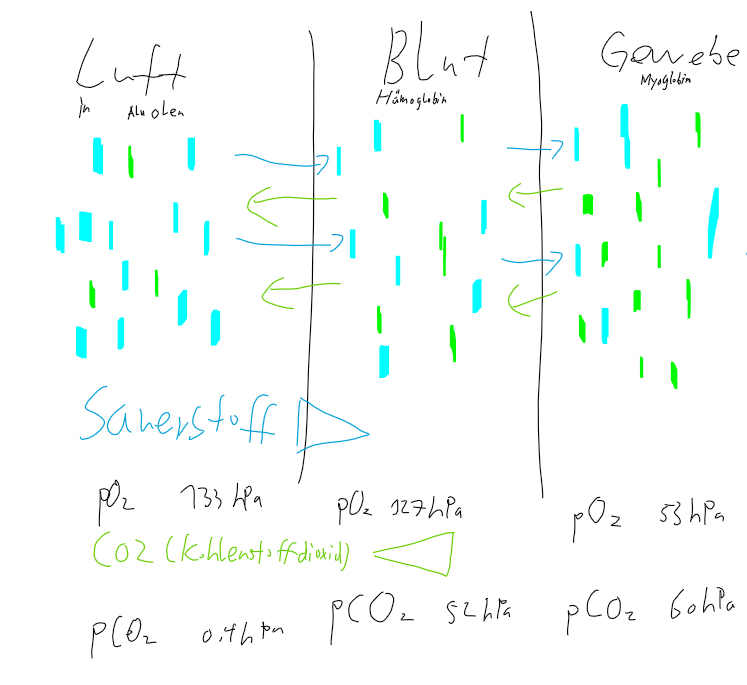 Luft
in Alveolen
Blut
Hämoglobin
Gewebe
Myoglobin
Sauerstoff
pO2 133 hPa
pO2 127 hPa
pO2 53 hPa
CO2 (Kohlenstoffdioxid)
pCO2 0.4 hPa
pCO2 52 hPa
pCO2 60 hPa